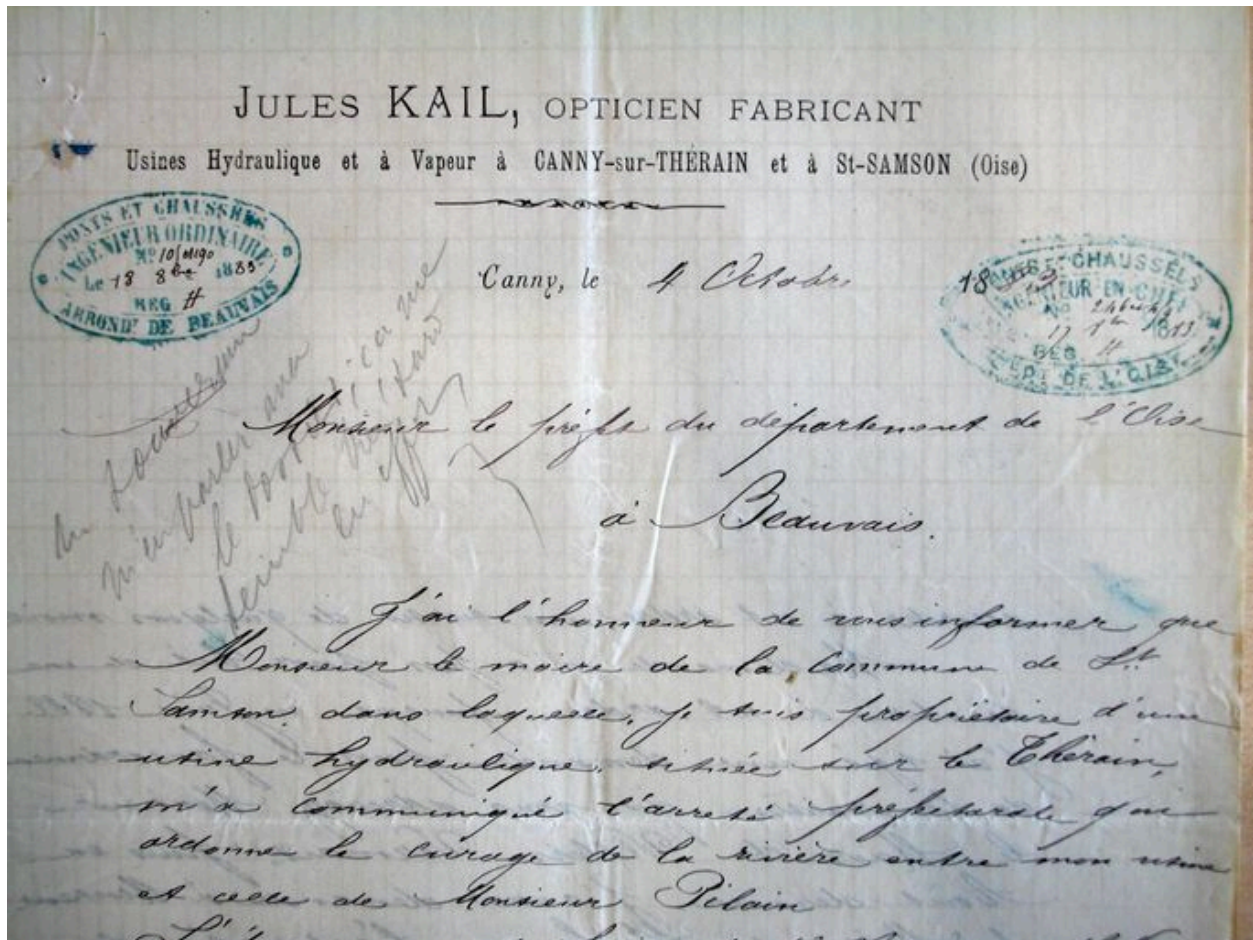 JULES KAIL, OPTICIEN FABRICANT
Usines Hydraulique et à Vapeur à CANNY-sur-THÉRAIN et à St-SAMSON (Oise)
PONTS ET CHAUSSÉES
INGÉNIEUR ORDINAIRE
No
Le 18 8bre 1883
REG H
ARRONDt DE BEAUVAIS
Canny, le 4 Octobre 18
PONTS ET CHAUSSÉES
INGÉNIEUR EN CHEF
No
REG H
DEPt DE L'OISE
m'en parler
le
en
Monsieur le préfet du département de l'Oise
à Beauvais.
J'ai l'honneur de vous informer que
Monsieur le maire de la Commune de St.
Samson, dans laquelle, je suis propriétaire d'une
usine hydraulique, située sur le Thérain,
m'a communiqué l'arreté préfectorale qui
ordonne le curage de la rivière entre mon usine
et celle de Monsieur Pilain